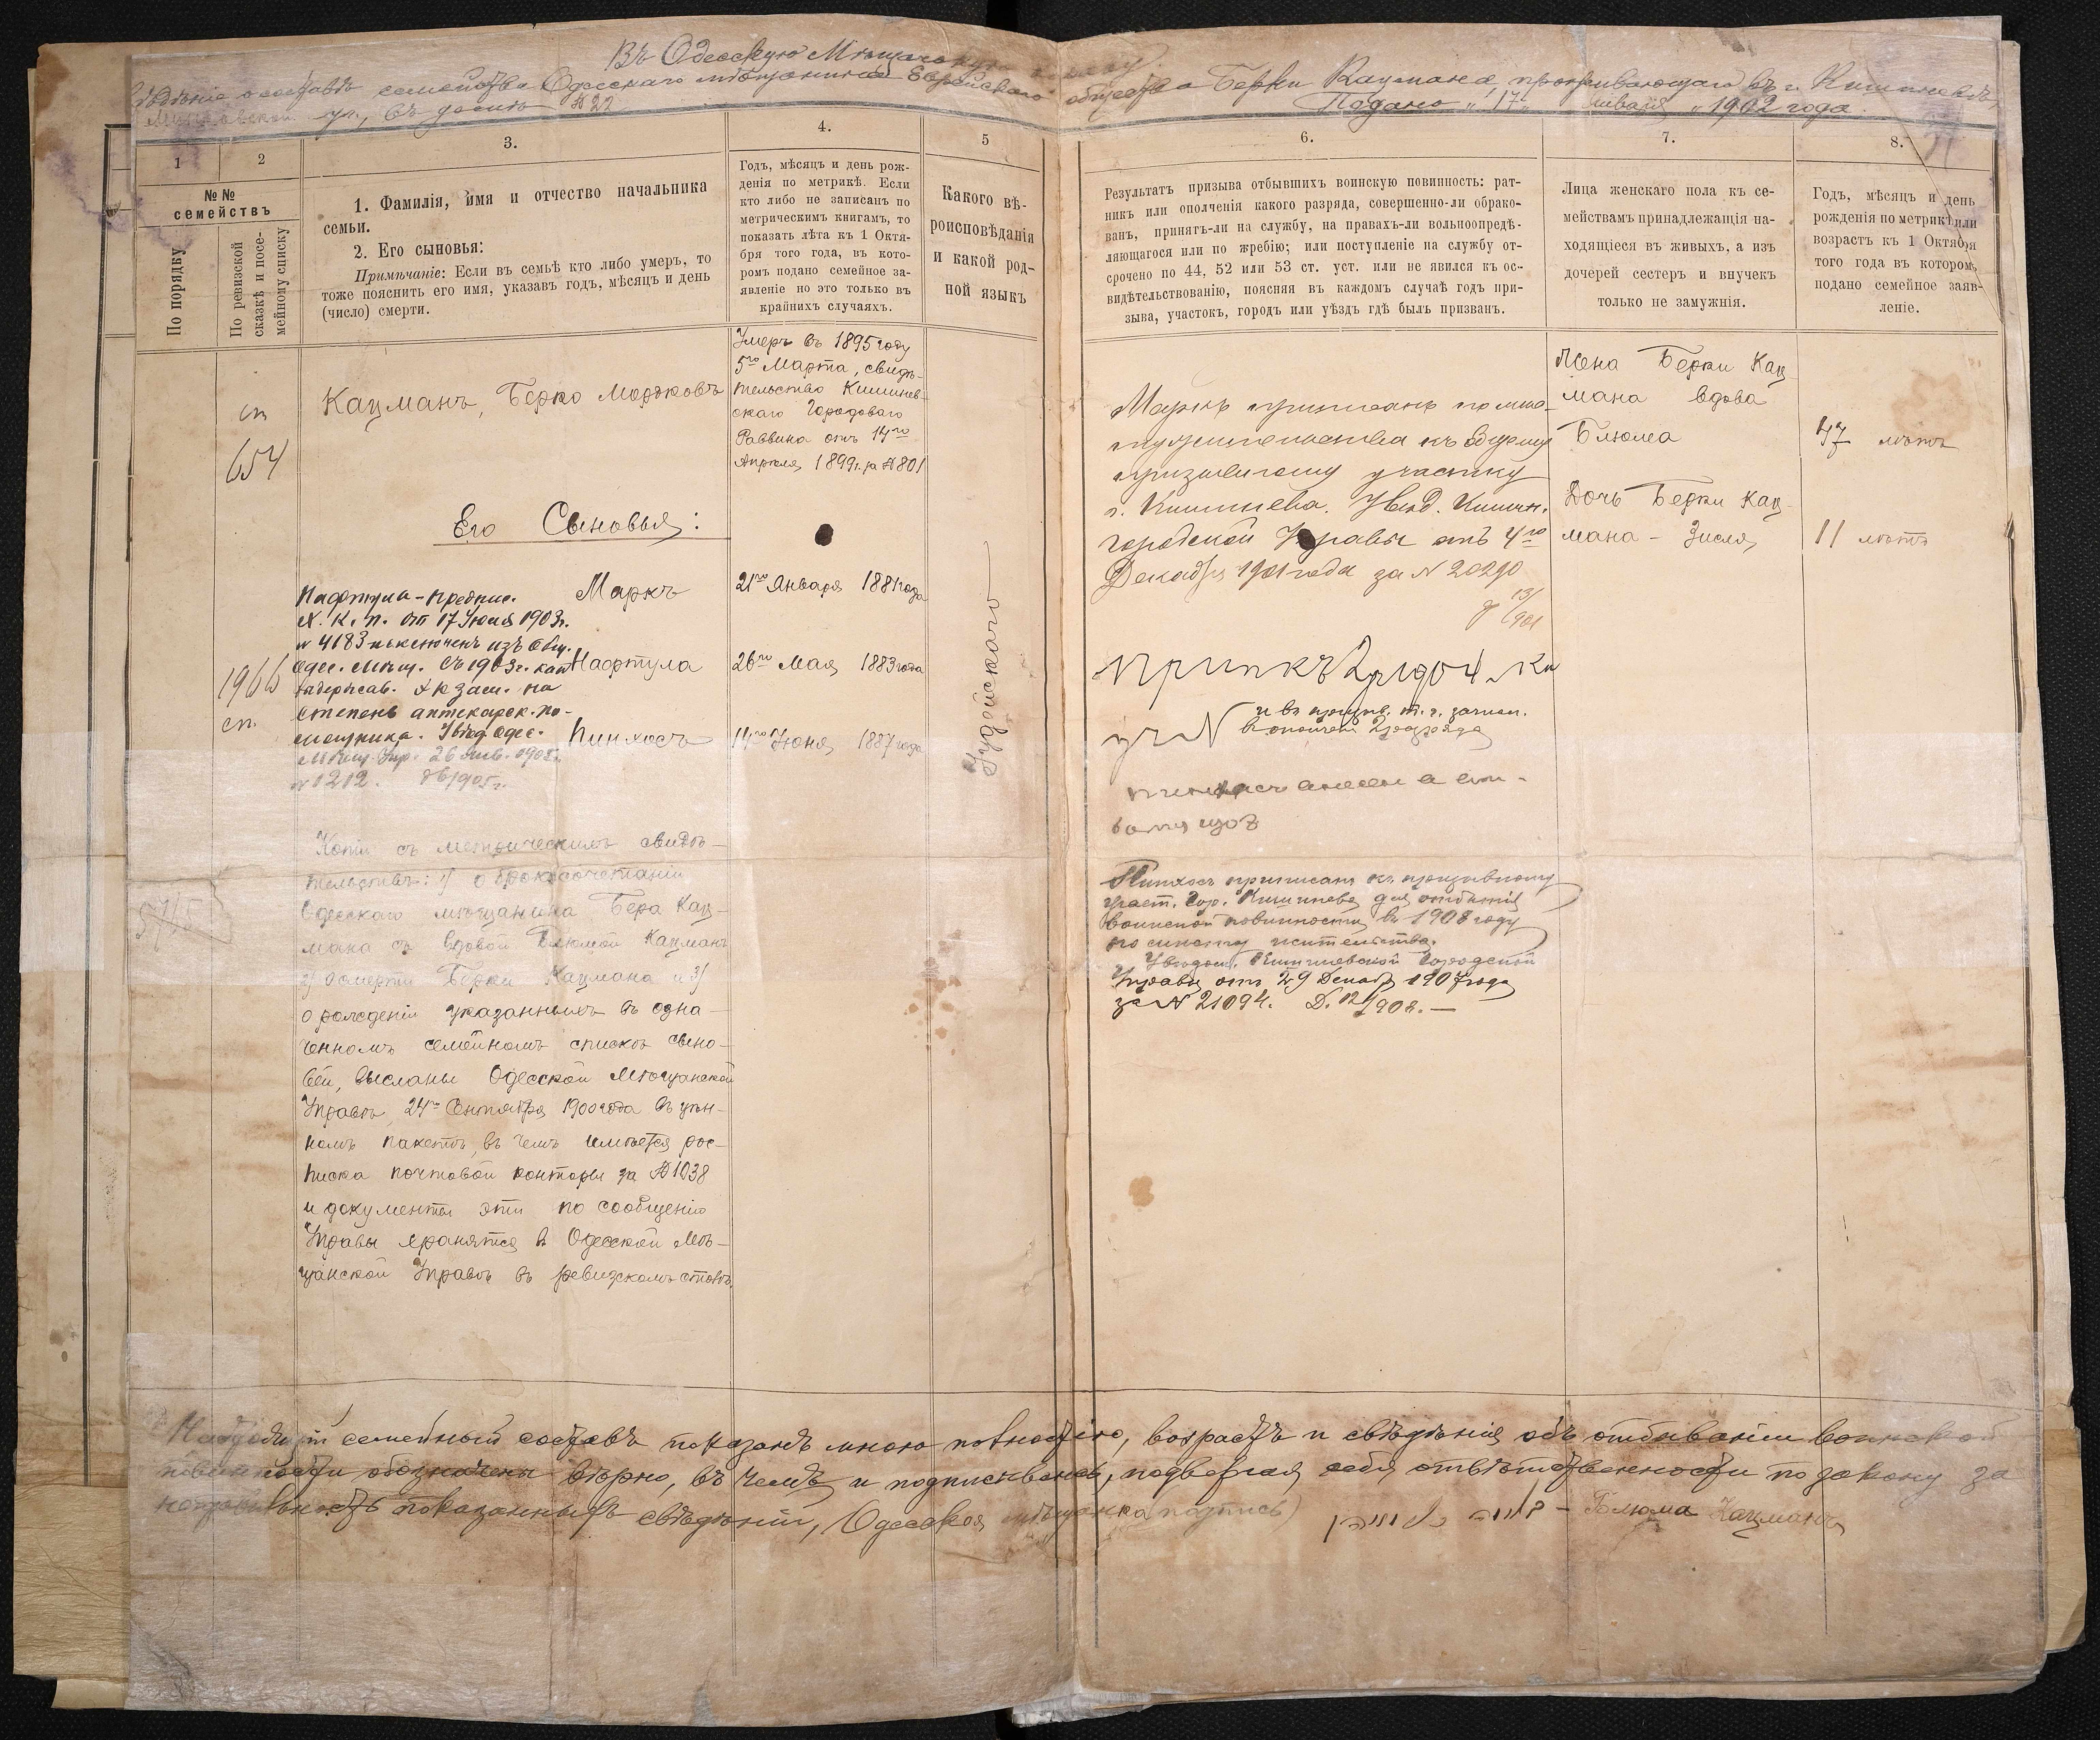 Въ Одесскую Мѣщанскую
о составѣ семейства Одесскаго мѣщанина Еврейскаго общества Берки Кацмана, проживающаго въ г. Кишиневѣ,
ул., въ домѣ № 22 Подано „17„ Января „1902 года.
1
2
3.
4.
5
6.
7.
8.
№№
семействъ
По порядку
По ревизской
сказкѣ и посе-
мейному списку
1. Фамилія, имя и отчество начальника
семьи.
2. Его сыновья:
Примѣчаніе: Если въ семьѣ кто либо умеръ, то
тоже пояснить его имя, указавъ годъ, мѣсяцъ и день
(число) смерти.
Годъ, мѣсяцъ и день рож-
денія по метрикѣ. Если
кто либо не записанъ по
метрическимъ книгамъ, то
показать лѣта къ 1 Октя-
бря того года, въ кото-
ромъ подано семейное за-
явленіе но это только въ
крайнихъ случаяхъ.
Какого вѣ-
роисповѣданія
и какой род-
ной языкъ
Результатъ призыва отбывшихъ воинскую повинность: рат-
никъ или ополченія какого разряда, совершенно-ли обрако-
ванъ, принятъ-ли на службу, на правахъ-ли вольноопредѣ-
ляющагося или по жребію; или поступленіе на службу от-
срочено по 44, 52 или 53 ст. уст. или не явился къ ос-
видѣтельствованію, поясняя въ каждомъ случаѣ годъ при-
зыва, участокъ, городъ или уѣздъ гдѣ былъ призванъ.
Лица женскаго пола къ се-
мействамъ принадлежащія на-
ходящіеся въ живыхъ, а изъ
дочерей сестеръ и внучекъ
только не замужнія.
Годъ, мѣсяцъ и день
рожденія по метрикѣ или
возрастъ къ 1 Октября
того года въ которомъ
подано семейное заяв-
леніе.
сп
654
Кацманъ, Берко Мордковъ
Умеръ въ 1895 году
5го Марта, свидѣ-
тельство Кишинев-
скаго Городоваго
Раввина отъ 14го
Апрѣля 1899 г. за № 801
Его Сыновья:
Маркъ
21го Января 1881 года
Нафтула
26го Мая 1883 года
Пинхосъ
14го Іюня 1887 года
Іудейскаго
Нафтула - предпис.
Х. К. П. от 17 Іюля 1903 г.
№ 4183 исключенъ изъ Общ.
Одес. Мѣщ. съ 1903 г. как
выдержав. экзам. на
степень аптекарск. по-
мощника. Увѣд. Одес.
Мѣщ. Упр. 26 Янв. 1905 г.
№ 1212. 1905 г.
1966
сп.
5765
Копіи съ метрическихъ свидѣ-
тельствъ: 1) о бракосочетаніи
Одесскаго мѣщанина Бера Кац-
мана съ вдовой Блюмой Кацманъ
2) о смерти Берки Кацмана и 3)
о рожденіи указанныхъ въ озна-
ченномъ семейномъ спискѣ сыно-
вей, высланы Одесской Мѣщанской
Управѣ 24го Сентября 1900 года въ цѣн-
номъ пакетѣ, въ чемъ имѣется рос-
писка почтовой конторы за № 1038
и документы эти по сообщенію
Управы хранятся въ Одесской Мѣ-
щанской Управѣ въ ревизскомъ столѣ.
Маркъ приписанъ по мѣсто-
жительству къ
призывному участку
г. Кишинева. Увѣд. Кишин.
городской Управы отъ 4го
Декабря 1901 года за № 20290
13/
901
и въ призыв. т. г. зачисл.
въ ополчен. 2 разряда
Пинхосъ приписанъ къ призывному
участ. Гор. Кишинева для отбытія
воинской повинности въ 1908 году
по мѣсту жительства.
Увѣдом. Кишиневской Городской
Управы отъ 29 Декабр 1907 года
за № 21094. Д. 12/1908. —
Жена Берки Кац-
мана вдова
Блюма
47 лѣтъ
Дочь Берки Кац-
мана - Зисля
11 лѣтъ
семейный составъ показанъ мною полностію, возрастъ и свѣдѣнія объ отбываніи воинской
повинности обозначены вѣрно, въ чемъ и подписываюсь, подвергая себя отвѣтственности по закону за
неправильность показанныхъ свѣдѣній, Одесская мѣщанка (подпись) — Блюма Кацманъ